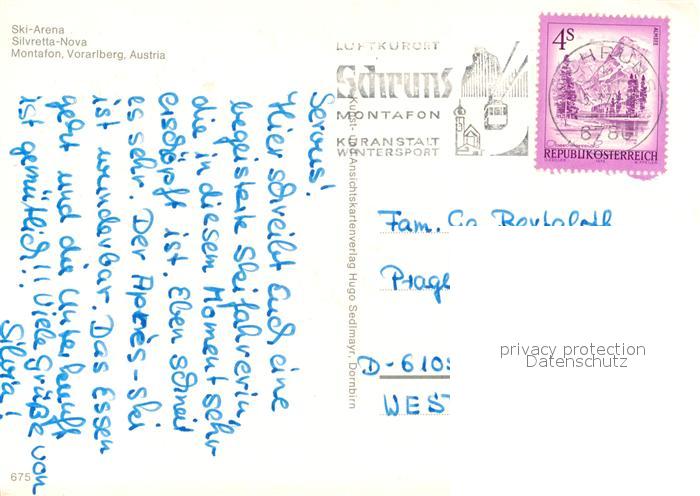 Ski-Arena
Silvretta-Nova
Montafon, Vorarlberg, Austria
LUFTKURORT
Schruns
MONTAFON
KURANSTALT
WINTERSPORT
4S
ALMSEE
6780
REPUBLIK ÖSTERREICH
Servus!
Hier schreibt Euch eine
begeisterte Skifahrerin,
die in diesem Moment sehr
erschöpft ist. Eben schneit
es sehr. Der Après-Ski
ist wunderbar. Das Essen
geht und die Unterkunft
ist gemütlich!!! Viele Grüße von
Silvia!
Kunst- und Ansichtskartenverlag Hugo Sedlmayr, Dornbirn
Fam.
D-610
WEST
privacy protection
Datenschutz
675